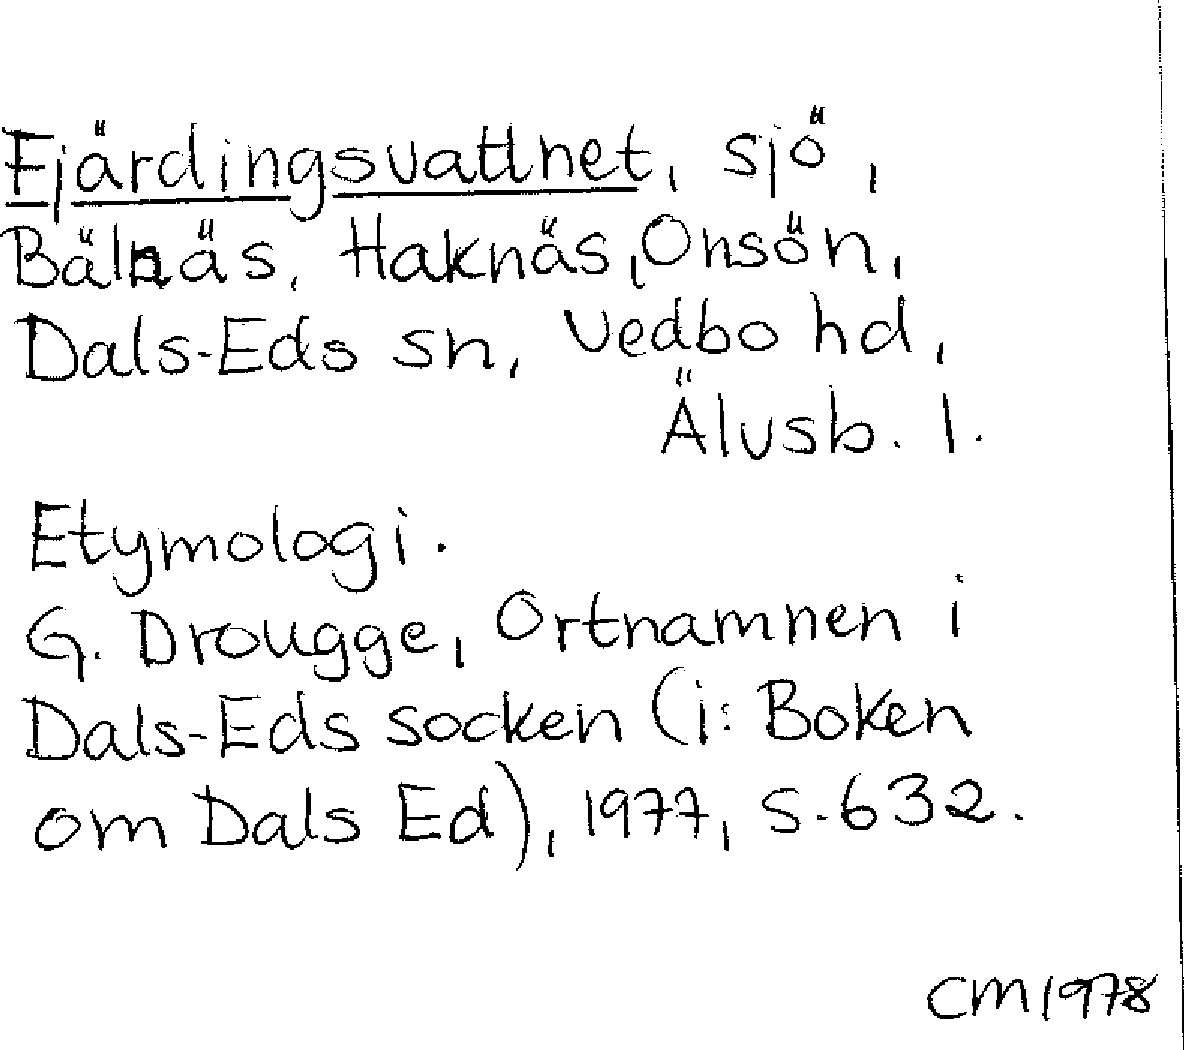 Fjärdingsvattnet, sjö,
Bälnäs, Haknäs, Onsön,
Dals-Eds sn, Vedbo hd,
Älvsb. l.
Etymologi.
G. Drougge, Ortnamnen i
Dals-Eds socken (i: Boken
om Dals Ed), 1977, s. 632.
CM 1978